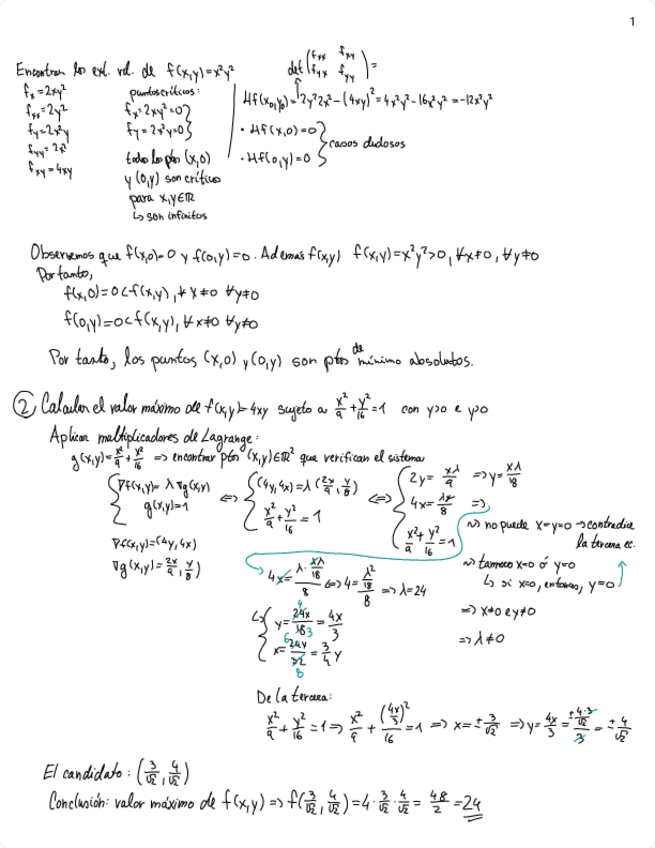 1
Encontrar los ext. rel. de f(x,y)=x²y²
det(fxx fxy
fyx fyy) =
fx=2xy²
fxx=2y²
fy=2x²y
fyy=2x²
fxy=4xy
puntos críticos:
fx=2xy²=0
fy=2x²y=0
todos los ptos (x,0)
y (0,y) son críticos
para x,y∈ℝ
↳ son infinitos
Hf(x₀,y₀)=2y²2x²-(4xy)²=4x²y²-16x²y²=-12x²y²
· Hf(x,0)=0
· Hf(0,y)=0
casos dudosos
Observemos que f(x,0)=0 y f(0,y)=0. Además f(x,y) f(x,y)=x²y²>0, ∀x≠0, ∀y≠0
Por tanto,
f(x,0)=0<f(x,y), ∀x≠0 ∀y≠0
f(0,y)=0<f(x,y), ∀x≠0 ∀y≠0
Por tanto, los puntos (x,0) y (0,y) son ptos de mínimo absolutos.
② Calcular el valor máximo de f(x,y)=4xy sujeto a x²/9+y²/16=1 con y>0 e y>0
Aplicar multiplicadores de Lagrange:
g(x,y)=x²/9+y²/16 => encontrar ptos (x,y)∈ℝ² que verifican el sistema
{∇f(x,y)=λ∇g(x,y)
g(x,y)=1
<=> {(4y,4x)=λ(2x/9, y/8)
x²/9+y²/16=1
<=> {2y=xλ/9 => y=xλ/18
4x=λy/8 =>
x²/9+y²/16=1
∇f(x,y)=(4y,4x)
∇g(x,y)=(2x/9, y/8)
⇝ no puede x=y=0 → contradice
la tercera ec.
⇝ tampoco x=0 ó y=0
↳ si x=0, entonces, y=0
=> x≠0 e y≠0
=> λ≠0
4x=(λ·xλ/18)/8 <=> 4=(λ²/18)/8 => λ=24
↳ {y=24x/18=4x/3
x=24y/32=3/4 y
4
3
6
8
De la tercera:
x²/9+y²/16=1 => x²/9+(4x/3)²/16=1 => x=±3/√2 => y=4x/3=(±4·3/√2)/3=±4/√2
El candidato: (3/√2, 4/√2)
Conclusión: valor máximo de f(x,y) => f(3/√2, 4/√2)=4·3/√2·4/√2=48/2=24